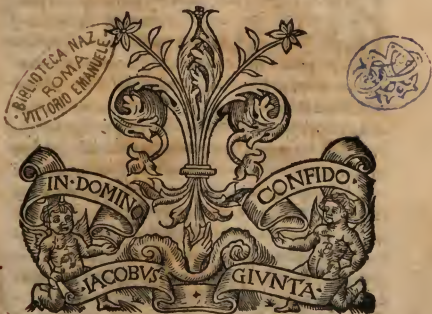 BIBLIOTECA NAZ
ROMA
VITTORIO EMANUELE
IN·DOMINO
CONFIDO·
·IACOBVS
GIVNTA·